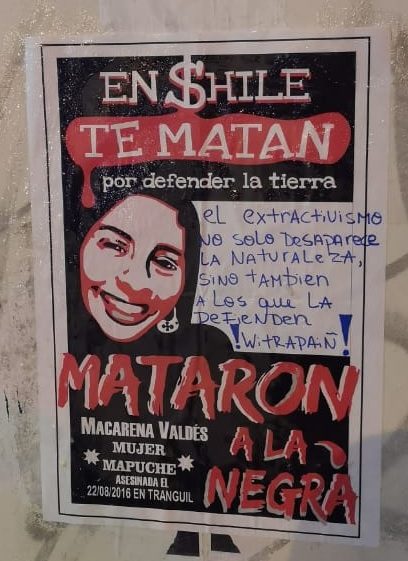 EN $HILE
TE MATAN
por defender la tierra
EL EXTRACTIVISMO
NO SOLO DESAPARECE
LA NATURALEZA,
SINO TAMBIEN
A LOS QUE LA
DEFIENDEN
¡WITRAPAIÑ!
MATARON
A LA
NEGRA
MACARENA VALDÉS
MUJER
* MAPUCHE *
ASESINADA EL
22/08/2016 EN TRANGUIL